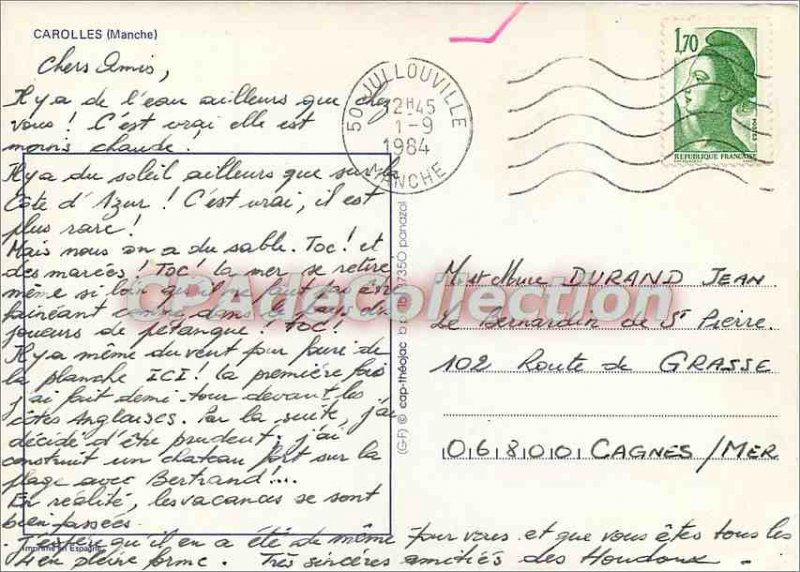 CAROLLES (Manche)
Chers Amis,
Il y a de l'eau ailleurs que chez
vous ! C'est vrai elle est
moins chaude !
Il y a du soleil ailleurs que sur la
Côte d'Azur ! C'est vrai, il est
plus rare !
Mais nous on a du sable. Toc ! et
des marées ! Toc ! la mer se retire
même si loin qu'il ne faut pas être
fainéant comme dans le pays des
joueurs de pétanque ! TOC !
Il y a même du vent pour faire de
la planche ICI ! la première fois
j'ai fait demi-tour devant les
côtes Anglaises. Par la suite, j'ai
décidé d'être prudent ; j'ai
construit un chateau fort sur la
plage avec Bertrand !...
En réalité, les vacances se sont
bien passées.
J'espère qu'il en a été de même pour vous et que vous êtes tous les
4 en pleine forme. Très sincères amitiés des Houdoux.
Imprimé en Espagne
(G-F) © cap-théojac 87350 panazol
50 JULLOUVILLE
12H45
1-9
1984
MANCHE
1,70
POSTES
RÉPUBLIQUE FRANÇAISE
M. et Mme DURAND JEAN
Le Bernardin de St Pierre.
102 Route de GRASSE
06800 CAGNES/MER
CPAdeCollection